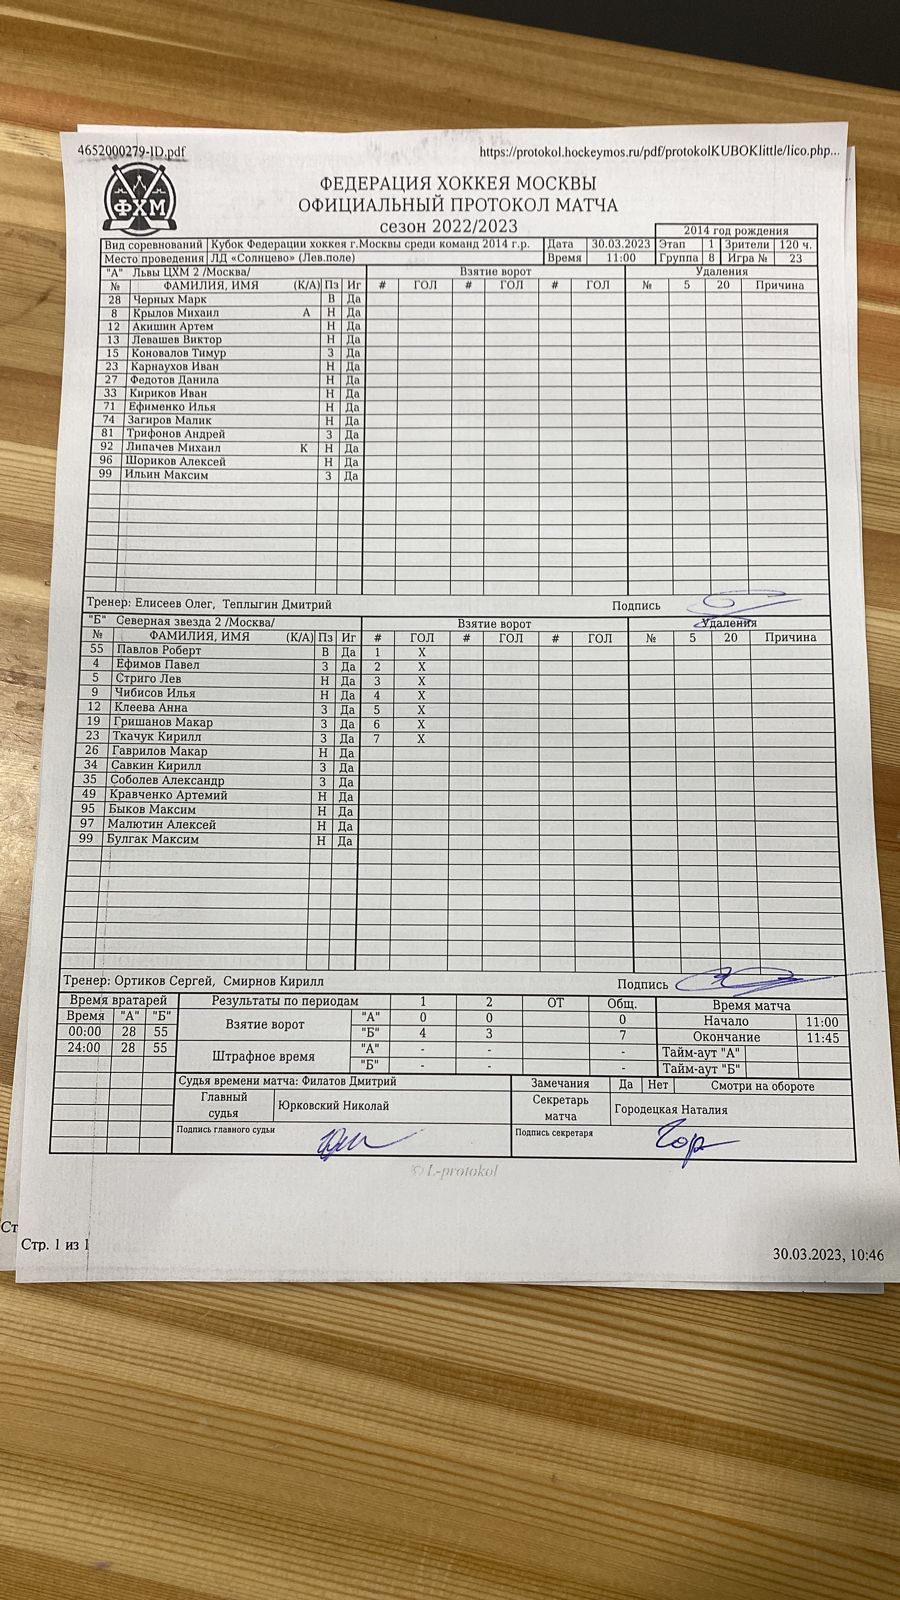 4652000279-ID.pdf https://protokol.hockeymos.ru/pdf/protokolKUBOKlittle/lico.php...
ФХМ
ФЕДЕРАЦИЯ ХОККЕЯ МОСКВЫ
ОФИЦИАЛЬНЫЙ ПРОТОКОЛ МАТЧА
сезон 2022/2023
2014 год рождения
Вид соревнований Кубок Федерации хоккея г.Москвы среди команд 2014 г.р. Дата 30.03.2023 Этап 1 Зрители 120 ч.
Место проведения ЛД «Солнцево» (Лев.поле) Время 11:00 Группа 8 Игра № 23
"А" Львы ЦХМ 2 /Москва/ Взятие ворот Удаления
№ ФАМИЛИЯ, ИМЯ (К/А) Пз Иг # ГОЛ # ГОЛ # ГОЛ № 5 20 Причина
28 Черных Марк В Да
8 Крылов Михаил А Н Да
12 Акишин Артем Н Да
13 Левашев Виктор Н Да
15 Коновалов Тимур З Да
23 Карнаухов Иван Н Да
27 Федотов Данила Н Да
33 Кириков Иван Н Да
71 Ефименко Илья Н Да
74 Загиров Малик Н Да
81 Трифонов Андрей З Да
92 Липачев Михаил К Н Да
96 Шориков Алексей Н Да
99 Ильин Максим З Да
Тренер: Елисеев Олег, Теплыгин Дмитрий Подпись
"Б" Северная звезда 2 /Москва/ Взятие ворот Удаления
№ ФАМИЛИЯ, ИМЯ (К/А) Пз Иг # ГОЛ # ГОЛ # ГОЛ № 5 20 Причина
55 Павлов Роберт В Да 1 X
4 Ефимов Павел З Да 2 X
5 Стриго Лев Н Да 3 X
9 Чибисов Илья Н Да 4 X
12 Клеева Анна З Да 5 X
19 Гришанов Макар З Да 6 X
23 Ткачук Кирилл З Да 7 X
26 Гаврилов Макар Н Да
34 Савкин Кирилл З Да
35 Соболев Александр З Да
49 Кравченко Артемий Н Да
95 Быков Максим Н Да
97 Малютин Алексей Н Да
99 Булгак Максим Н Да
Тренер: Ортиков Сергей, Смирнов Кирилл Подпись
Время вратарей Результаты по периодам 1 2 ОТ Общ. Время матча
Время "А" "Б" Взятие ворот "А" 0 0 0 Начало 11:00
00:00 28 55 "Б" 4 3 7 Окончание 11:45
24:00 28 55 Штрафное время "А" - - - Тайм-аут "А"
"Б" - - - Тайм-аут "Б"
Судья времени матча: Филатов Дмитрий Замечания Да Нет Смотри на обороте
Главный судья Юрковский Николай Секретарь матча Городецкая Наталия
Подпись главного судьи Подпись секретаря Гор
© L-protokol
Ст
Стр. 1 из 1
30.03.2023, 10:46